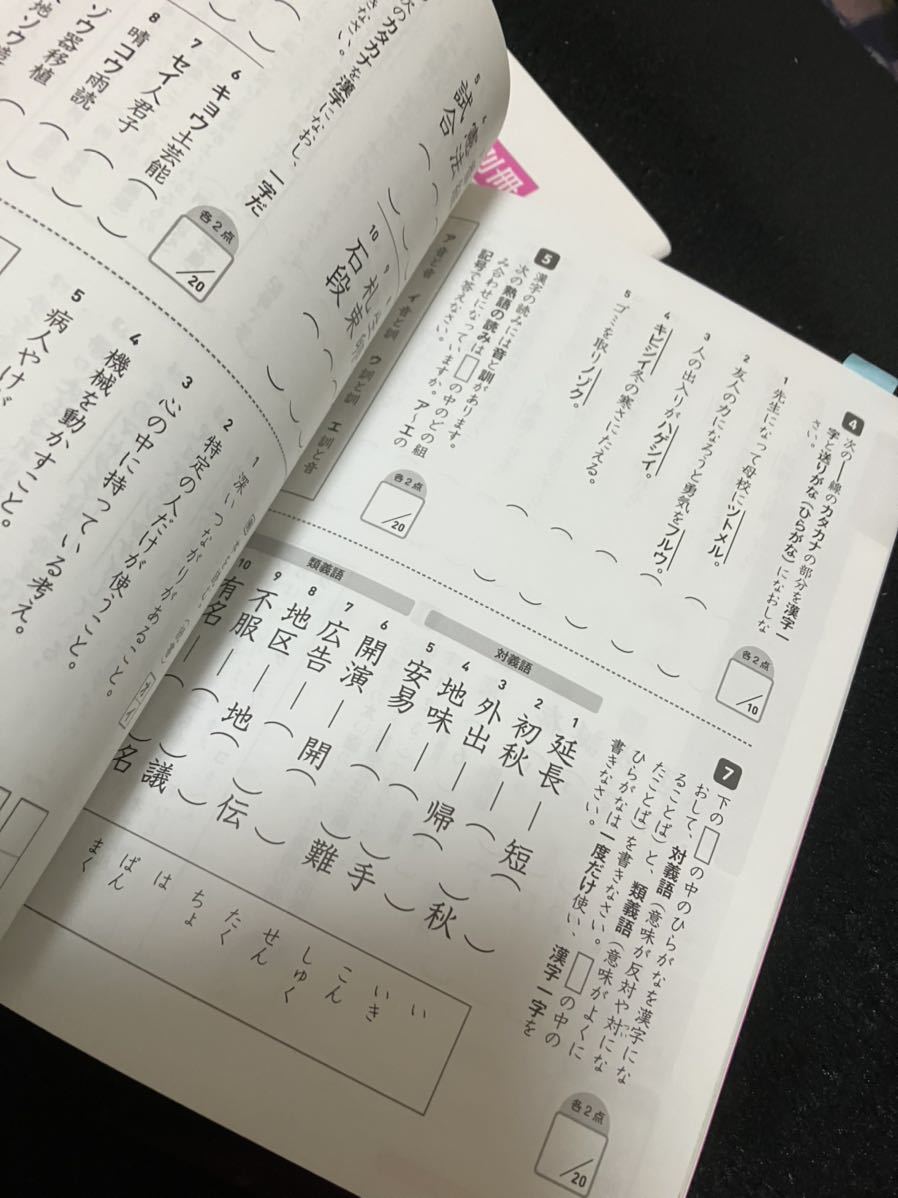 別冊
4 次の―線のカタカナの部分を漢字一
字と送りがな（ひらがな）になおしな
さい。
各2点
/10
1 先生になって母校にツトメル。（　）
2 友人の力になろうと勇気をフルウ。（　）
3 人の出入りがハゲシイ。（　）
4 キビシイ冬の寒さにたえる。（　）
5 ゴミを取りノゾク。（　）
5 漢字の読みには音と訓があります。
次の熟語の読みは□の中のどの組
み合わせになっていますか。ア～エの
記号で答えなさい。
各2点
/20
ア 音と音　イ 音と訓　ウ 訓と訓　エ 訓と音
7 下の□の中のひらがなを漢字にな
おして、対義語（意味が反対や対にな
ることば）と、類義語（意味がよくに
たことば）を書きなさい。□の中の
ひらがなは一度だけ使い、漢字一字を
書きなさい。
各2点
/20
対義語
1 延長―短（　）
2 初秋―（　）秋
3 外出―帰（　）
4 地味―（　）手
5 安易―（　）難
類義語
6 開演―開（　）
7 広告―（　）伝
8 地区―地（　）
9 不服―（　）議
10 有名―（　）名
い
いき
こん
しゅく
せん
たく
ちょ
は
ばん
まく
5 試合（　）
9 札束（　）
10 石段（　）
次のカタカナを漢字になおし、一字だ
きなさい。
各2点
/20
6 キョウ土芸能（　）
7 セイ人君子（　）
8 晴コウ雨読（　）
ゾウ器移植（　）
1 深いつながりがあること。
2 特定の人だけが使うこと。
3 心の中に持っている考え。
4 機械を動かすこと。
5 病人やけが